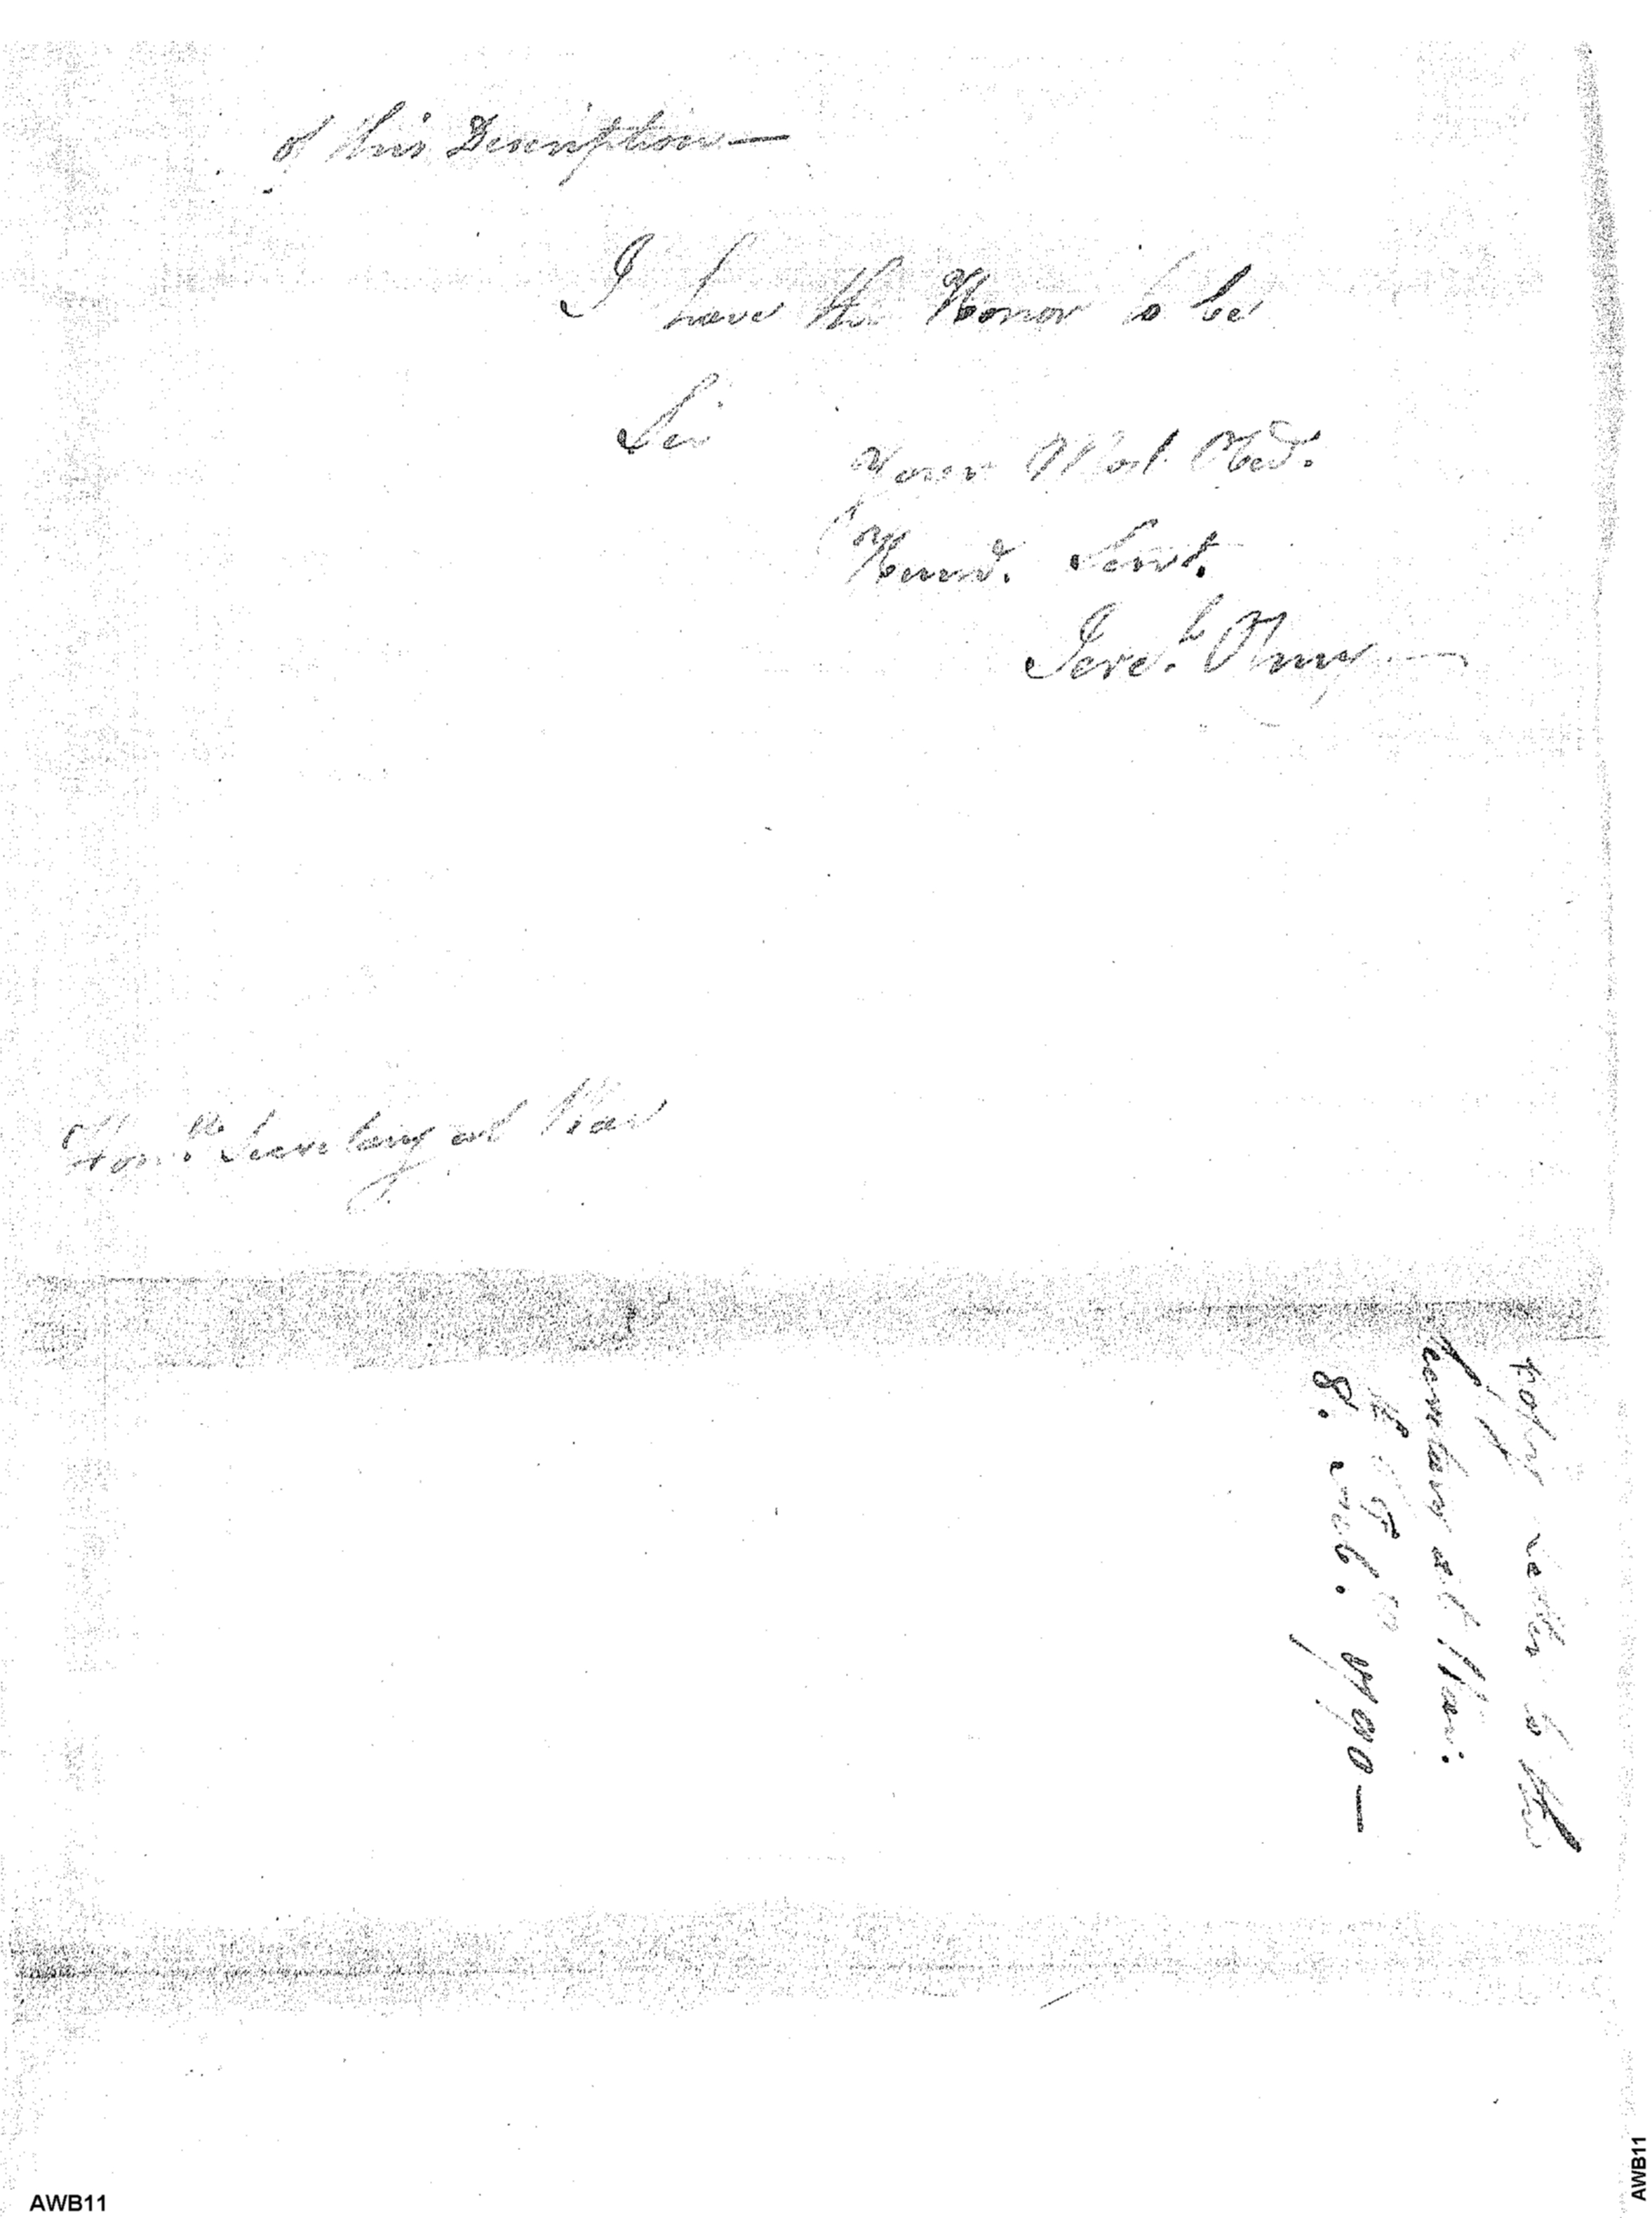 of this Description—
I have the Honor to be
Sir
Your Most Obed.
Humd. Servt.
Jere.h Olney—
Hon.ble Secretary at War
Copy Letter to the
Secretary at War:
8. Feb. 1790—
AWB11
AWB11